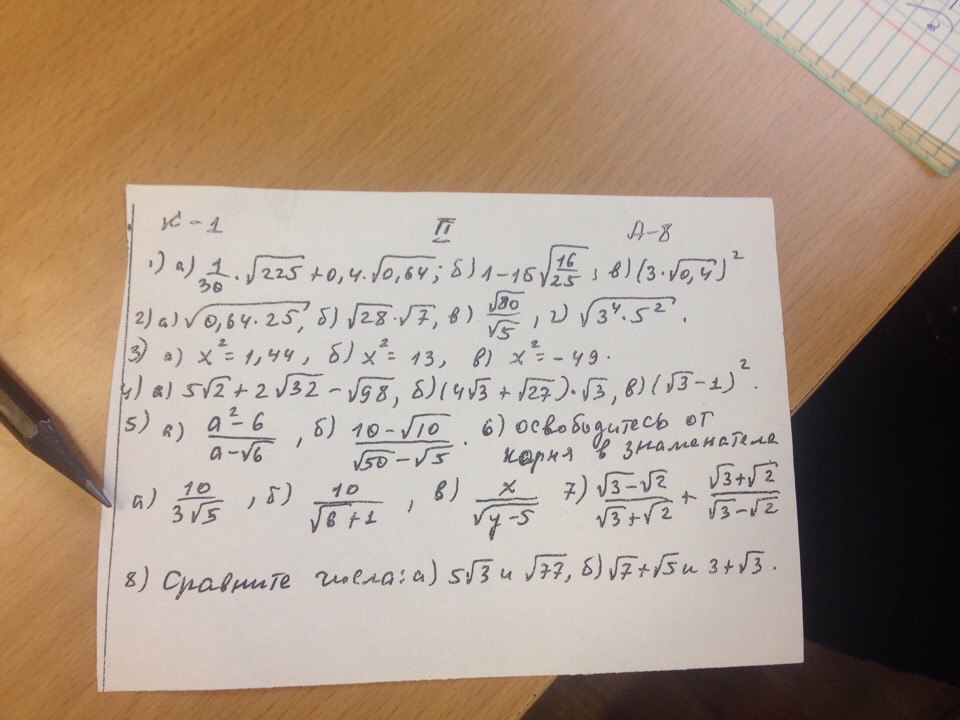 К-1 II А-8
1) а) 1/30 · √225 + 0,4 · √0,64; б) 1-15√(16/25); в) (3·√0,4)²
2) а) √(0,64·25), б) √28·√7, в) √80/√5, г) √(3⁴·5²).
3) а) x² = 1,44, б) x² = 13, в) x² = -49.
4) а) 5√2 + 2√32 - √98, б) (4√3 + √27)·√3, в) (√3-1)².
5) а) (a²-6)/(a-√6), б) (10-√10)/(√50-√5). 6) освободитесь от
корня в знаменателе
а) 10/(3√5), б) 10/(√6+1), в) x/√(y-5) 7) (√3-√2)/(√3+√2) + (√3+√2)/(√3-√2)
8) Сравните числа: а) 5√3 и √77, б) √7+√5 и 3+√3.